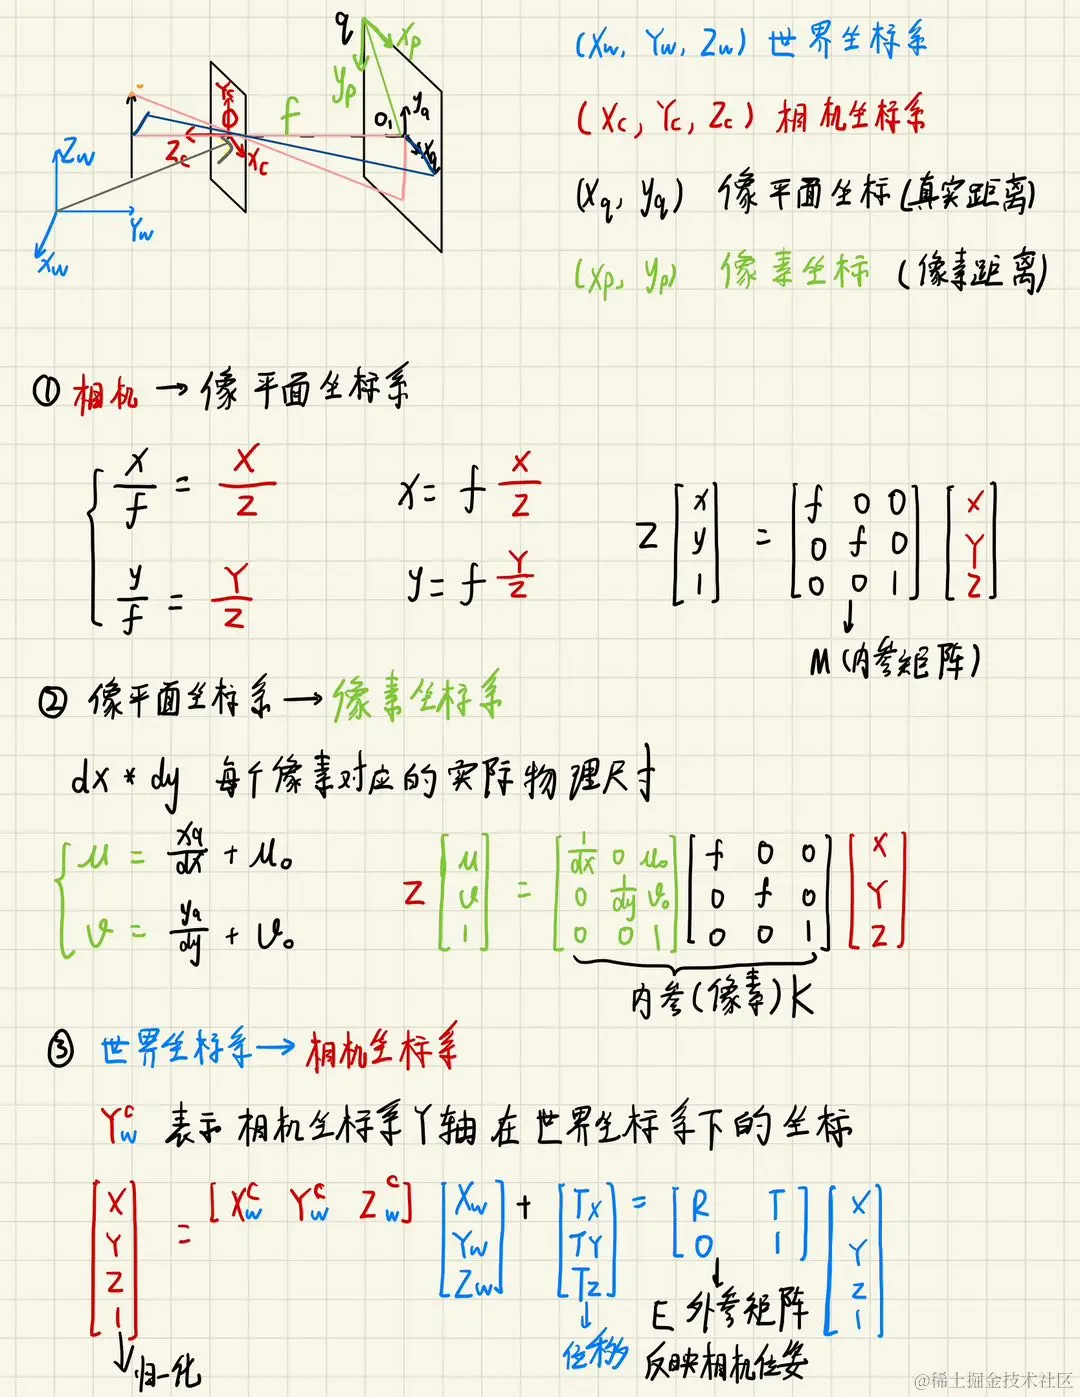 q
Xp
yp
Yc
O
f
O₁
yq
Xq
Zc
Xc
Zw
Yw
Xw
(Xw, Yw, Zw) 世界坐标系
(Xc, Yc, Zc) 相机坐标系
(xq, yq) 像平面坐标(真实距离)
(xp, yp) 像素坐标 (像素距离)
① 相机 → 像平面坐标系
{ x/f = X/Z    x = f X/Z
y/f = Y/Z    y = f Y/Z
Z [x y 1] = [f 0 0; 0 f 0; 0 0 1] [X Y Z]
M (内参矩阵)
② 像平面坐标系 → 像素坐标系
dx * dy 每个像素对应的实际物理尺寸
{ u = xq/dx + u₀
v = yq/dy + v₀
Z [u v 1] = [1/dx 0 u₀; 0 1/dy v₀; 0 0 1] [f 0 0; 0 f 0; 0 0 1] [X Y Z]
内参(像素) K
③ 世界坐标系 → 相机坐标系
Y^c_w 表示相机坐标系Y轴在世界坐标系下的坐标
[X Y Z 1] = [X^c_w Y^c_w Z^c_w] [Xw Yw Zw] + [Tx Ty Tz] = [R T; 0 1] [X Y Z 1]
归一化
位移
E 外参矩阵
反映相机位姿
@稀土掘金技术社区